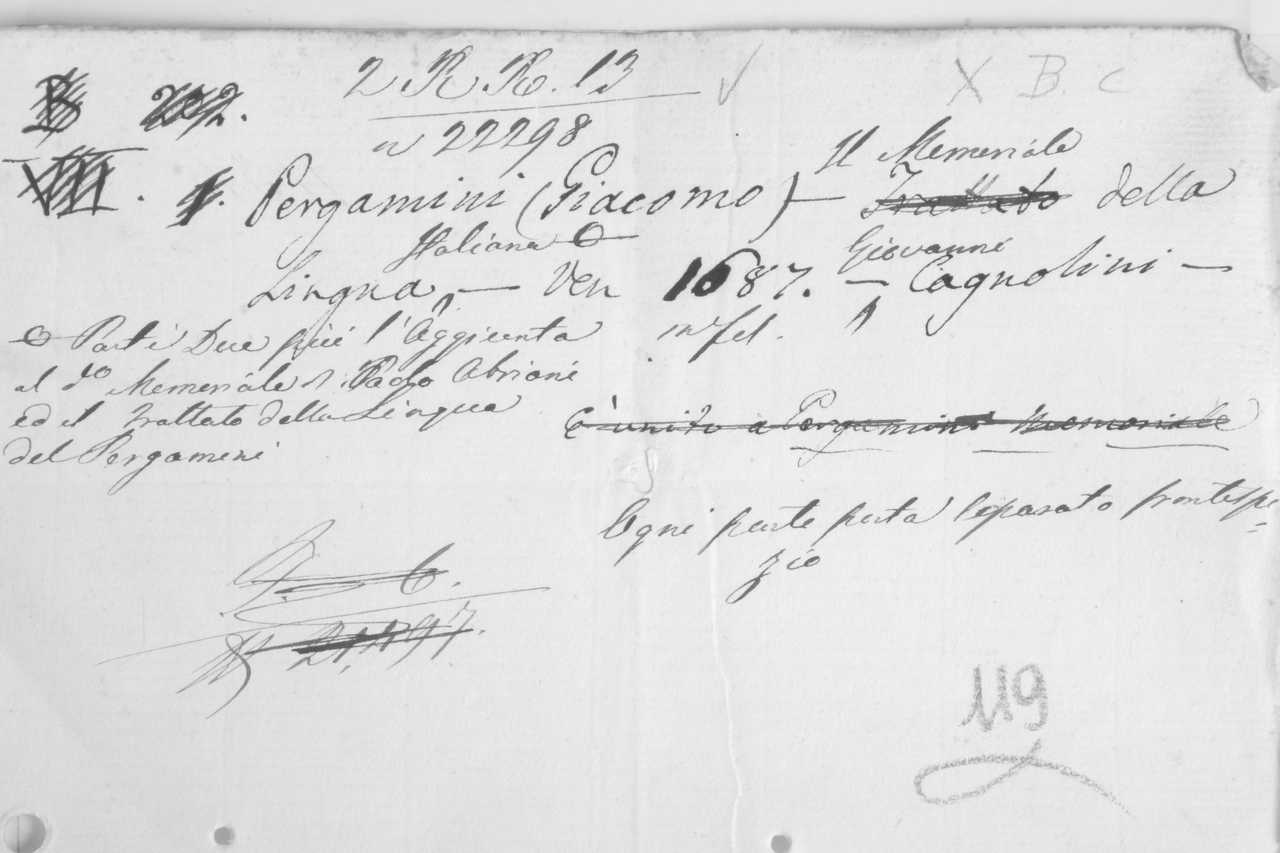 2 R R. 13
X B. C
B 202.
n 22298
VIII. 1. Pergamini (Giacomo) — Il Memoriale
Trattato della
Italiana
Lingua, — Ven 1687. — Giovanni Cagnolini —
in fol.
Parti Due più l'Aggiunta
al do Memoriale di Paolo Abriani
ed il trattato della Lingua
del Pergamini
È unito a Pergamini Memoriale
Ogni parte porta separato frontespi=
zio
6.
119